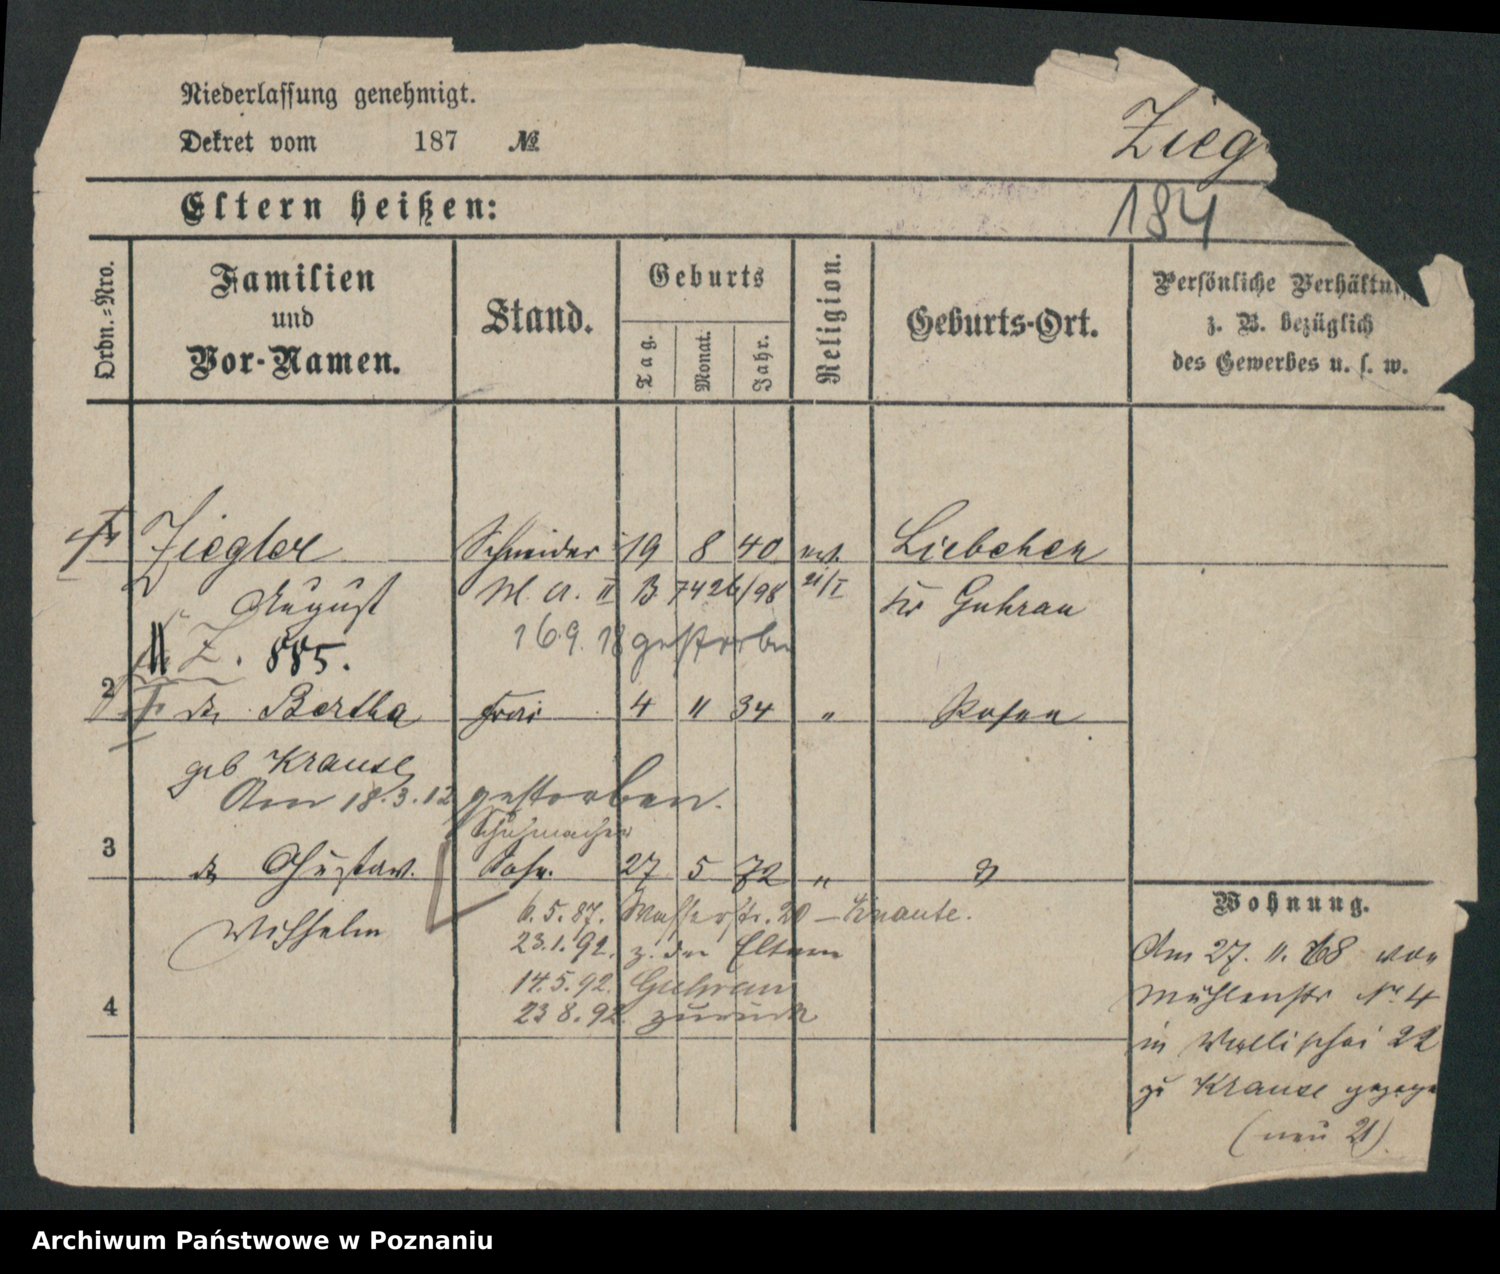 Niederlassung genehmigt.
Dekret vom 187 №
Zieg
Eltern heißen:
184
Ordn.=Nro.
Familien
und
Vor-Namen.
Stand.
Geburts
Tag.
Monat.
Jahr.
Religion.
Geburts-Ort.
Persönliche Verhältn
z. B. bezüglich
des Gewerbes u. s. w.
Ziegler Schneider 19 8 40 ev. Liebchen
August M. A. II B 7426/98 21/I Kr Guhrau
Z. 885. 16.9.18 gestorben
2 Bertha Frau 4 11 34 " Posen
geb Krause
Am 18.3.12 gestorben.
Schuhmacher
3 Gustav Sohn. 27 5 72 "
Wilhelm 6.5.87. Wasserstr. 20 – Knaute.
23.1.92. z. den Eltern
14.5.92. Guhrau
23 8.92. zurück
4
Wohnung.
Am 27. 11. 68 von
Mühlenstr Nr 4
in Wallischei 22
zu Krause gezoge
(neu 21)
Archiwum Państwowe w Poznaniu